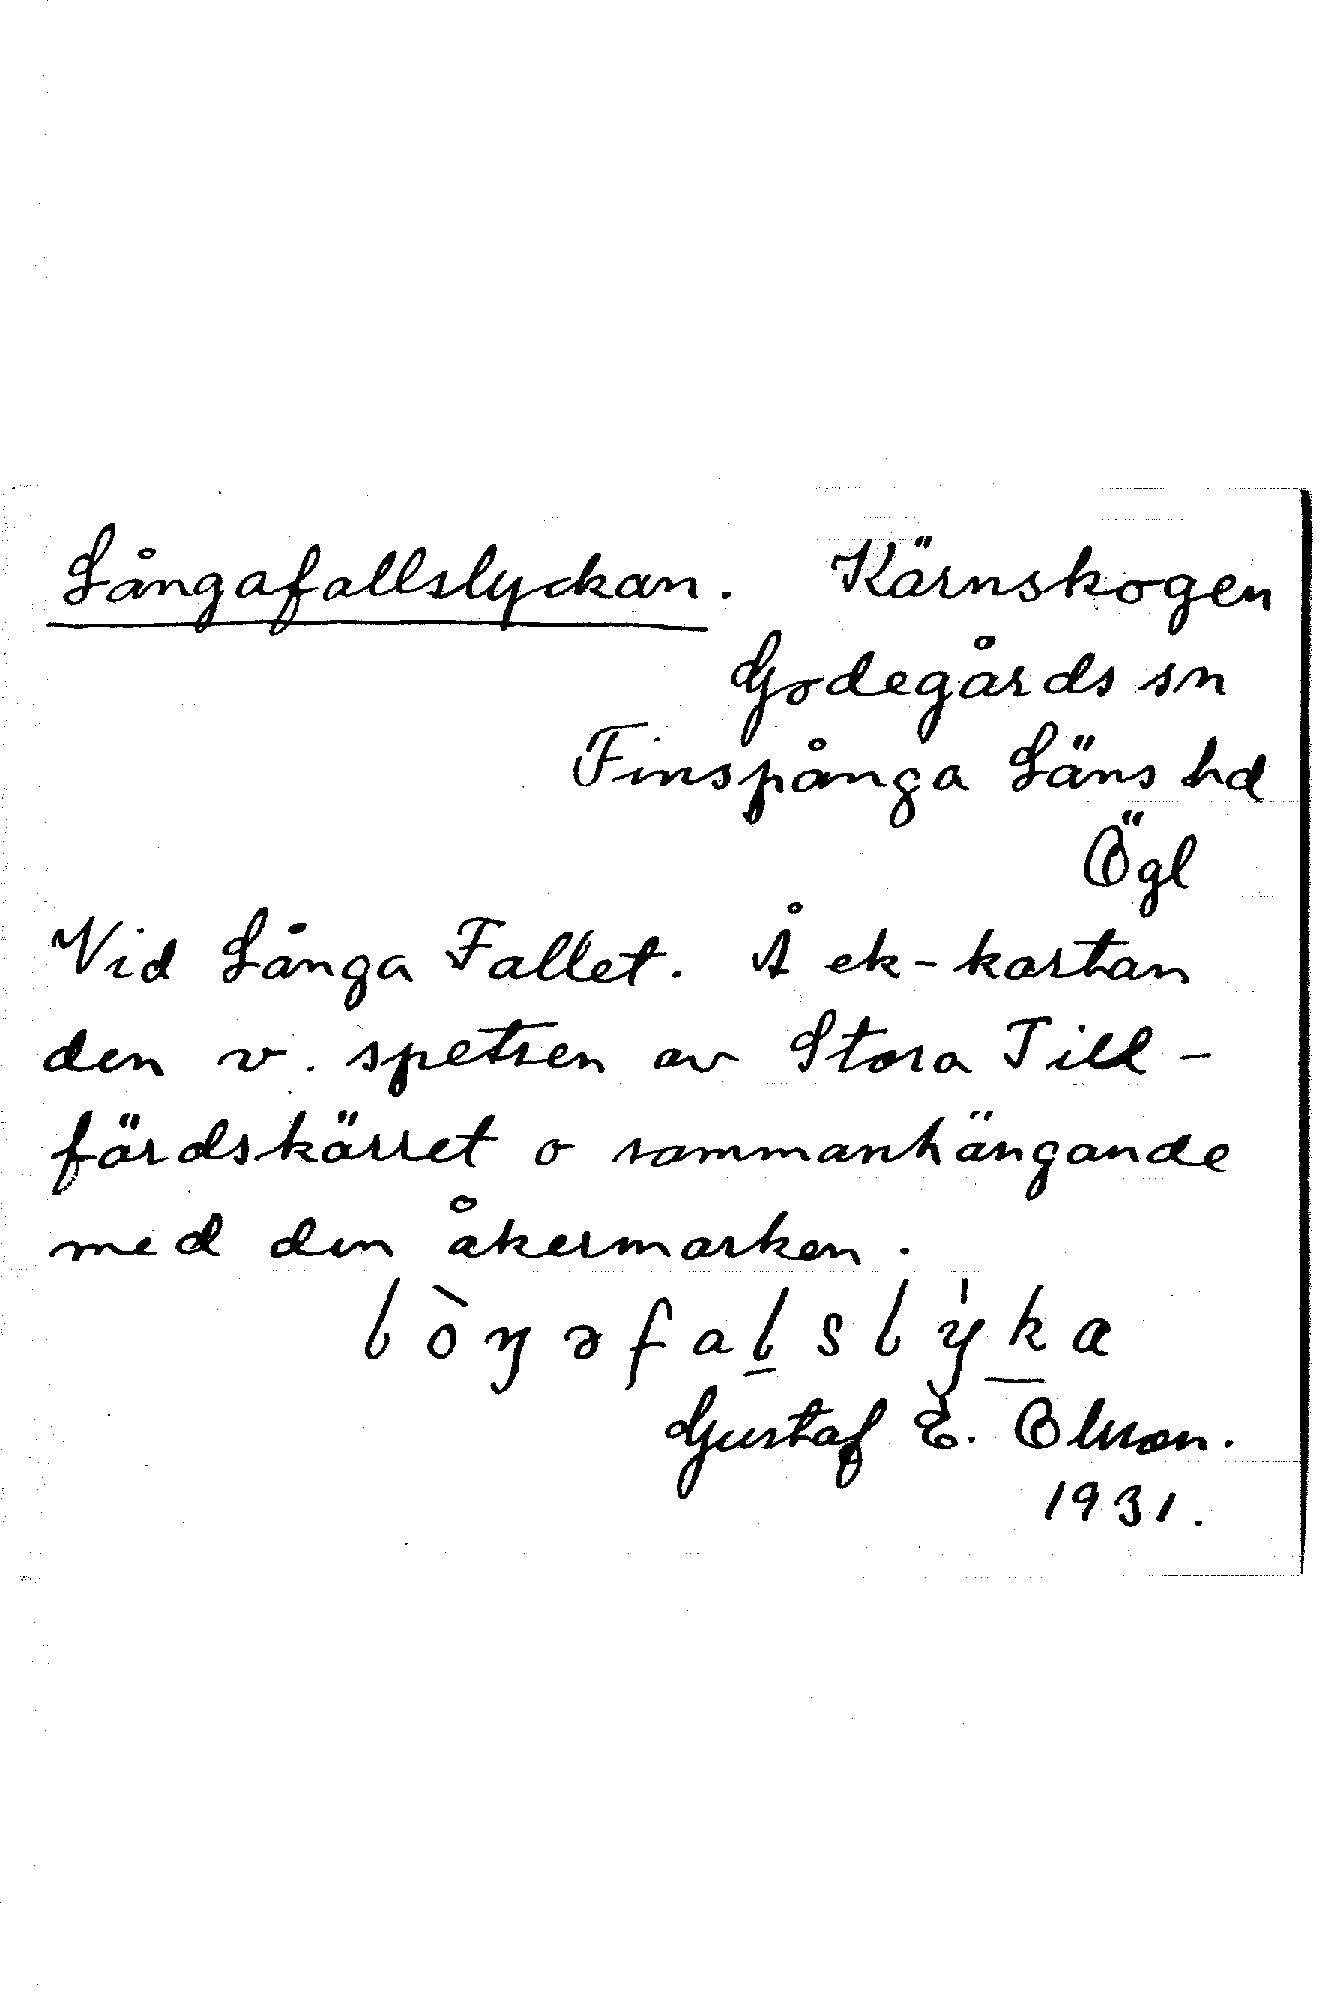 Långafallslyckan. Kärnskogen
Godegårds sn
Finspånga Läns hd
Ögl
Vid Långa Fallet. Å ek-kartan
den v. spetsen av Stora Till-
färdskärret o sammanhängande
med den åkermarken.
lòŋəfalslýka
Gustaf E. Olsson.
1931.